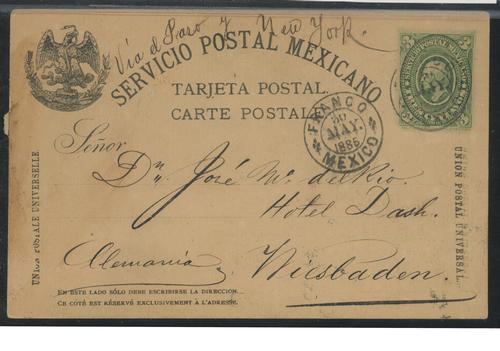 Via el Paso y New York.
SERVICIO POSTAL MEXICANO
TARJETA POSTAL.
CARTE POSTALE
3 SERVICIO POSTAL MEXICANO 3
FRANCO
30
MAY.
1886
MEXICO
Señor
Dn. José Ma. del Rio.
Hotel Dash.
Alemania
Wiesbaden.
UNION POSTALE UNIVERSELLE
UNION POSTAL UNIVERSAL
EN ESTE LADO SÓLO DEBE ESCRIBIRSE LA DIRECCION.
CE CÔTÉ EST RÉSERVÉ EXCLUSIVEMENT À L'ADRESSE.